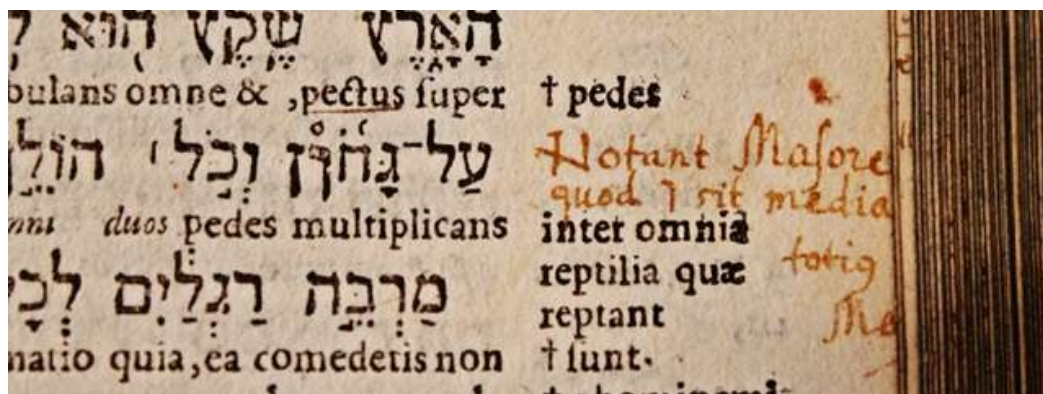 הָאָרֶץ שֶׁקֶץ הוּא
bulans omne & ,pectus ſuper
עַל־גָּחוֹן וְכֹל ׀ הוֹלֵ
duos pedes multiplicans
מַרְבֵּה רַגְלַיִם לְכָל
matio quia,ea comedetis non
† pedes
Notant Maſore
quod ו sit media
inter omnia
totiq
reptilia quæ
reptant
Me
† ſunt.